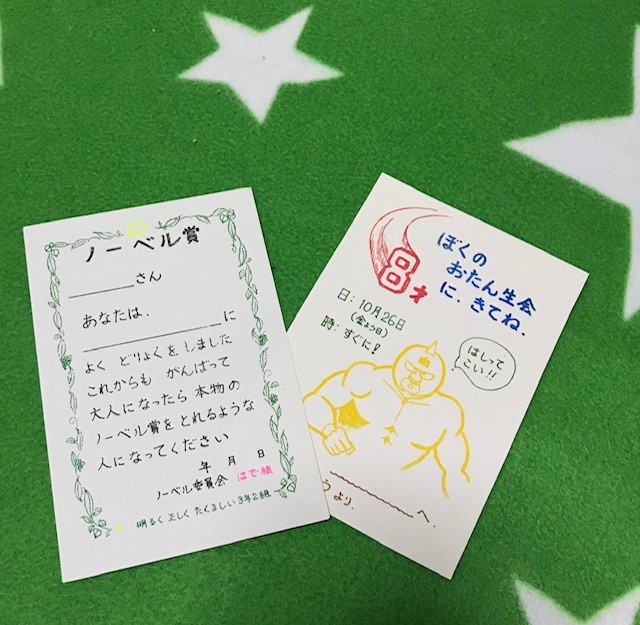 ノーベル賞
さん
あなたは、
に
よく どりょくを しました
これからも がんばって
大人になったら 本物の
ノーベル賞をとれるような
人になってください
年 月 日
ノーベル委員会 はで組
明るく 正しく たくましい 3年2組
8才
ぼくの
おたん生会
に、きてね。
日:10月26日
(金よう日)
時:すぐに!
はしって
こい!!
肉
へ。
うより。